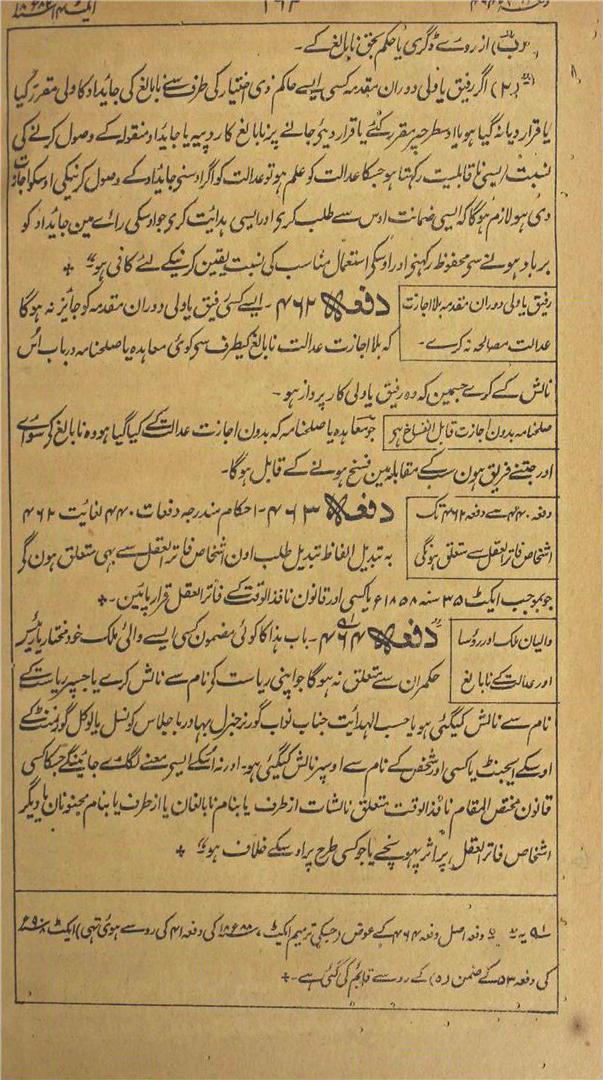 (ب) از روے ڈگری یا حکم بحق نابالغ کے۔
(۲) اگر رفیق یا ولی دوران مقدمہ کسی ایسے حاکم ذی اختیار کی طرف سے نابالغ کی جائداد کا ولی مقرر کیا گیا
یا قرار دیا نہ گیا ہو یا اوسطرحپر مقرر کئے یا قرار دیئے جانے پر نابالغ کا روپیہ یا جایداد منقولہ کے وصول کرنے کی
نسبت ایسی ناقابلیت رکہتا ہو جسکا عدالت کو علم ہو تو عدالت کو اگر اوسنی جایداد کے وصول کرنیکی اوسکو اجازت
دی ہو لازم ہوگا کہ ایسی ضمانت اوس سے طلب کری اور ایسی ہدایت کری جو اوسکی رائے مین جائداد کو
برباد ہونے سے محفوظ رکہنی اور اوسکی استعمال مناسب کی نسبت یقین کرنیکے لئے کافی ہو
رفیق یا ولی دوران مقدمہ بلا اجازت
عدالت مصالحہ نہ کرے۔
دفعہ ۴۶۲۔ ایسے کسی رفیق یا ولی دوران مقدمہ کو جایز نہ ہوگا
کہ بلا اجازت عدالت نابالغ کیطرف سے کوئی معاہدہ یا صلحنامہ درباب اُس
نالش کے کرے جسمین کہ وہ رفیق یا ولی کار پرداز ہو۔
صلحنامہ بدون اجازت قابل انفساخ ہے
جو معاہدہ یا صلحنامہ کہ بدون اجازت عدالت کے کیا گیا ہو وہ نابالغ کے سوائے
اور جتنے فریق ہون سب کے مقابلہ مین فسخ ہونے کے قابل ہوگا۔
دفعہ ۴۴۰ سے دفعہ ۴۶۲ تک
اشخاص فاتر العقل سے متعلق ہونگی
دفعہ ۴۶۳۔ احکام مندرجہ دفعات ۴۴۰ لغایت ۴۶۲
بہ تبدیل الفاظ تبدیل طلب اون اشخاص فاتر العقل سے بہی متعلق ہون گے
جو بموجب ایکٹ ۳۵ سنہ ۱۸۵۸ع یا کسی اور قانون نافذ الوقت کے فاتر العقل قرار پائین۔
والیان ملک اور روسا
اور عدالت کے نابالغ
دفعہ ۴۶۴۔ باب ہذا کا کوئی مضمون کسی ایسے والئ ملک خود مختار یا رئیس
حکمران سے متعلق نہ ہوگا جو اپنی ریاست کے نام سے نالش کرے یا جسپر ریاست کے
نام سے نالش کیگئی ہو یا حسب الہدائت جناب نواب گورنر جنرل بہادر باجلاس کونسل یا لوکل گورنمنٹ کے
اوسکے ایجنٹ یا کسی اور شخص کے نام سے اوسپر نالش کیگئی ہو۔ اور نہ اسکے ایسی معنے لگائے جائینگے جسکا کسی
قانون مختص المقام نافذ الوقت متعلق نالشات از طرف یا بنام نابالغان یا از طرف یا بنام مجنونان یا دیگر
اشخاص فاتر العقل پر اثر پہونچے یا جو کسی طرح پر اوسکے خلاف ہو
یہ دفعہ اصل دفعہ ۴۶۴ کے عوض (جسکی ترمیم ایکٹ کی دفعہ ۴۱ کی رو سے ہوئی تہی) ایکٹ
کی دفعہ ۵۳ کے ضمن (۵) کے رو سے قایم کی گئی ہے۔